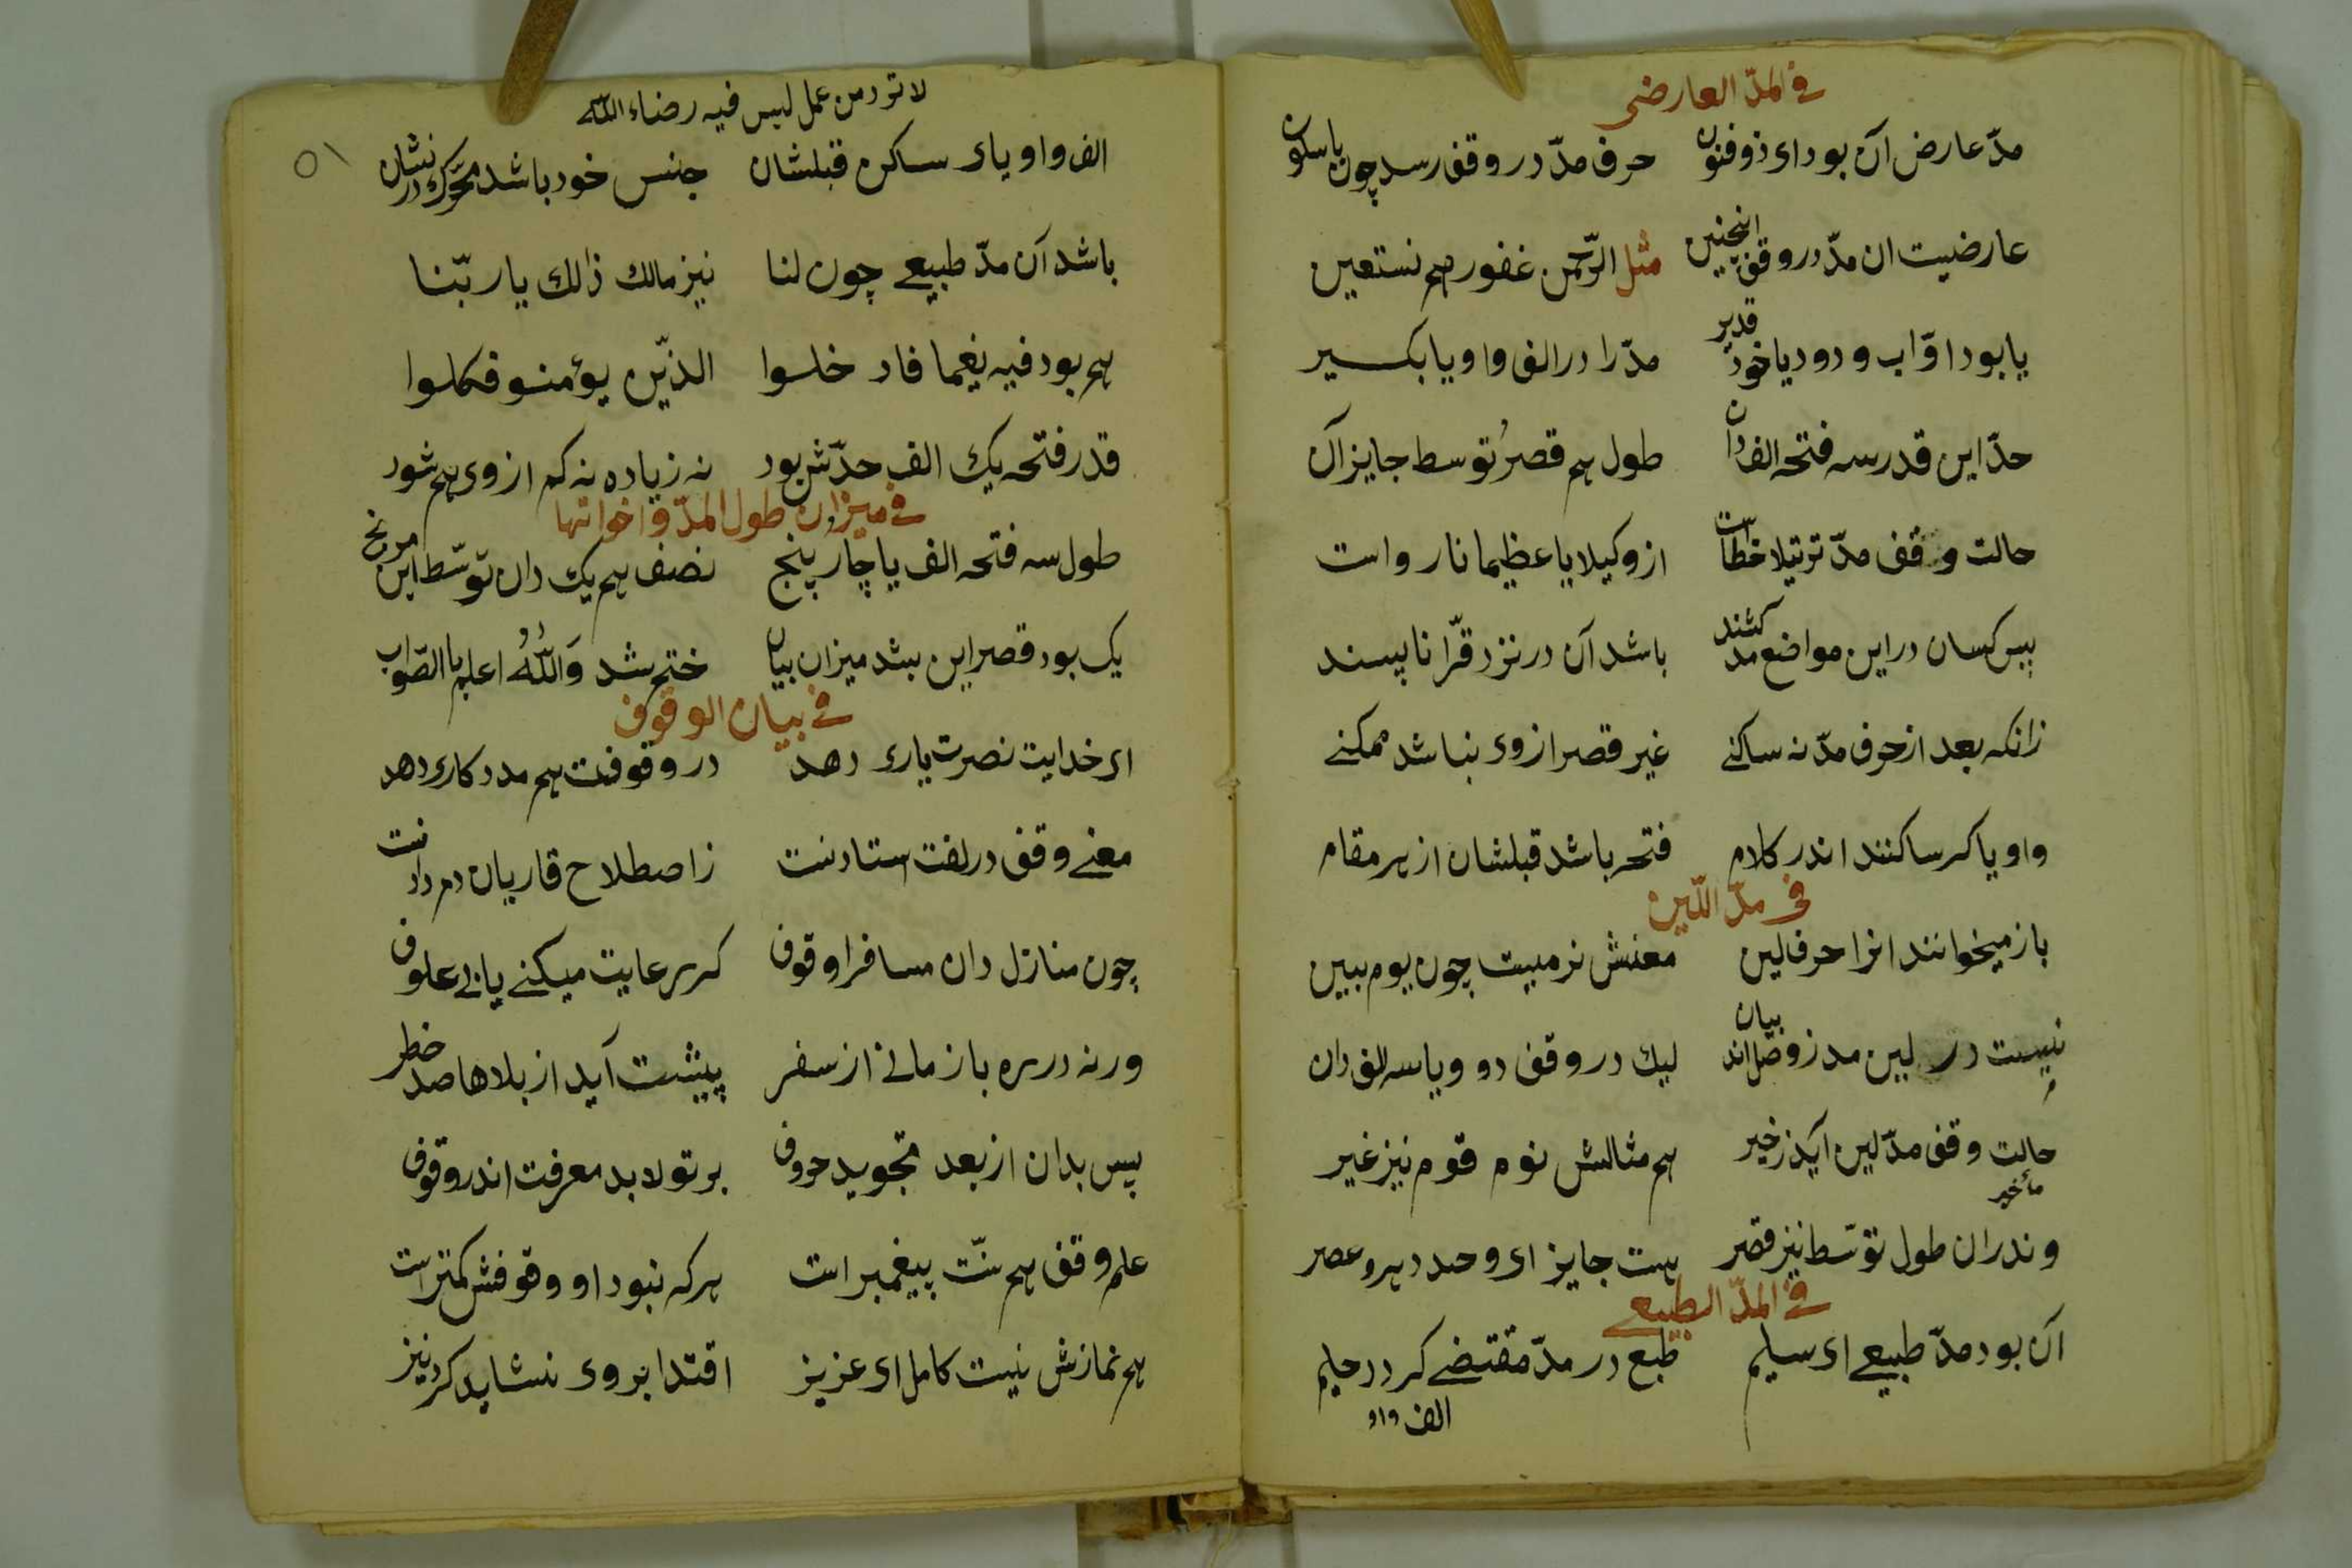 في المدّ العارضی
مدّ عارض آن بود ای ذوفنون حرف مدّ در وقف رسد چون باسکون
عارضیت ان مدّ در وقف اینچنین مثل الرّحمن غفور هم نستعین
یا بود اوّاب و دود یا خود قدیر مدّ را در الف واو یا بکسیر
حدّ این قدر سه فتحه الف دان طول هم قصرُ توسط جایز آن
حالت وقف مدّ ترتیلا خطاست از وکیلا یا عظیما نارواست
پس کسان در این مواضع مدّ کشند باشد آن در نزد قرّا ناپسند
زانکه بعد از حرف مدّ نه ساکنے غیر قصر از وی نباشد ممکنے
واو یا کر ساکنند اندر کلام فتحه باشد قبلشان از هر مقام
فی مدّ اللّین
باز میخوانند انرا حرف لین معنش نرمیت چون یوم ببین
نیست در لین مد ز وصل اند بیان لیك در وقف دو ویا سه الف دان
حالت وقف مدّ لین آید زخیر هم مثالش نوم قوم نیز غیر
وندران طول توسّط نیز قصر هست جایز ای وحد دهر و عصر
في المدّ الطبیعے
آن بود مدّ طبیعے ای سلیم طبع در مدّ مقتضے کردد حلیم
الف واو
لا تردمن عمل لیس فیه رضاء اللّه
۵۱
الف واو یای ساکن قبلشان جنس خود باشد محّرك در نشان
باشد آن مدّ طبیعے چون لنا نیز مالك ذالك یا ربّنا
هم بود فیه نعیما فاد خلوا الذّین یؤمنو فکلوا
قدر فتحه یك الف حدّش بود نه زیاده نه کم از وی هم شود
في میزان طول المدّ و اخواتها
طول سه فتحه الف یا چار پنج نصف هم یك دان توسّط این مرنج
یک بود قصر این بشد میزان بیان ختم شد وَاللّهُ اعلم بالصّواب
في بیان الوقوف
ای خدایت نصرت یاری دهد در وقوفت هم مدد کاری دهد
معنے وقف در لغت استادنت ز اصطلاح قاریان دم دادنت
چون منازل دان مسافرا وقوف کر رعایت میکنے یابی علوف
ورنه در ره باز مانے از سفر پیشت آید از بلاها صد خطر
پس بدان از بعد تجوید حروف بر تو لابد معرفت اندر وقوف
علم وقف هم سنّت پیغمبر است هر که نبود او وقوفش کمتر است
هم نمازش نیت کامل ای عزیز اقتدا بر وی نشاید کرد نیز